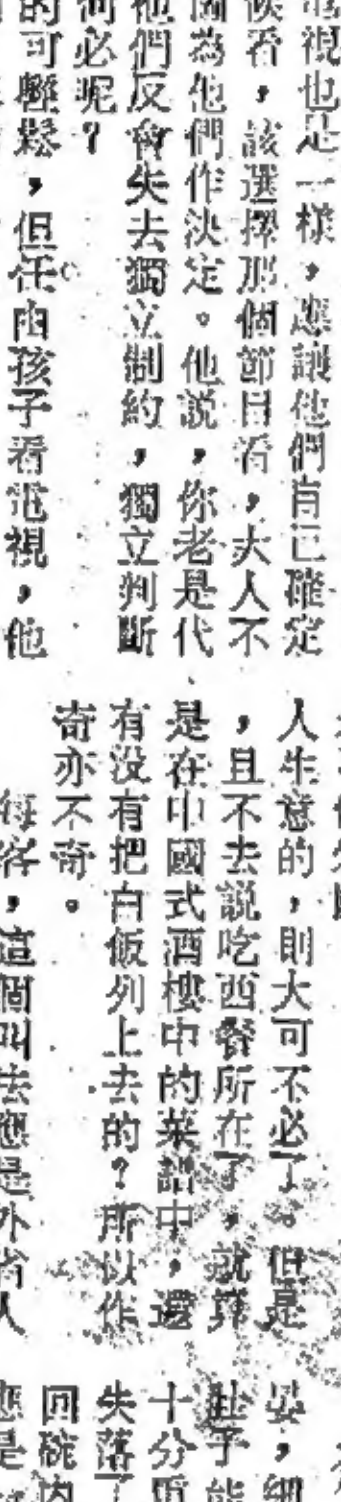 電視也是一樣，應讓他們自己確定
候看，該選擇那個節目看，大人不
為他們作決定。他說，你老是代
他們反會失去獨立制約，獨立判斷
何必呢？
的可輕鬆，但任由孩子看電視，他
人生意的，則大可不必了。但是
，且不去說吃西餐所在了，就算
是在中國式酒樓中的菜譜中，還
有没有把白飯列上去的？所以作
奇亦不奇。
每客，這個叫法應是外省人
，細
肚子能
十分
失落了
回碗内
應是